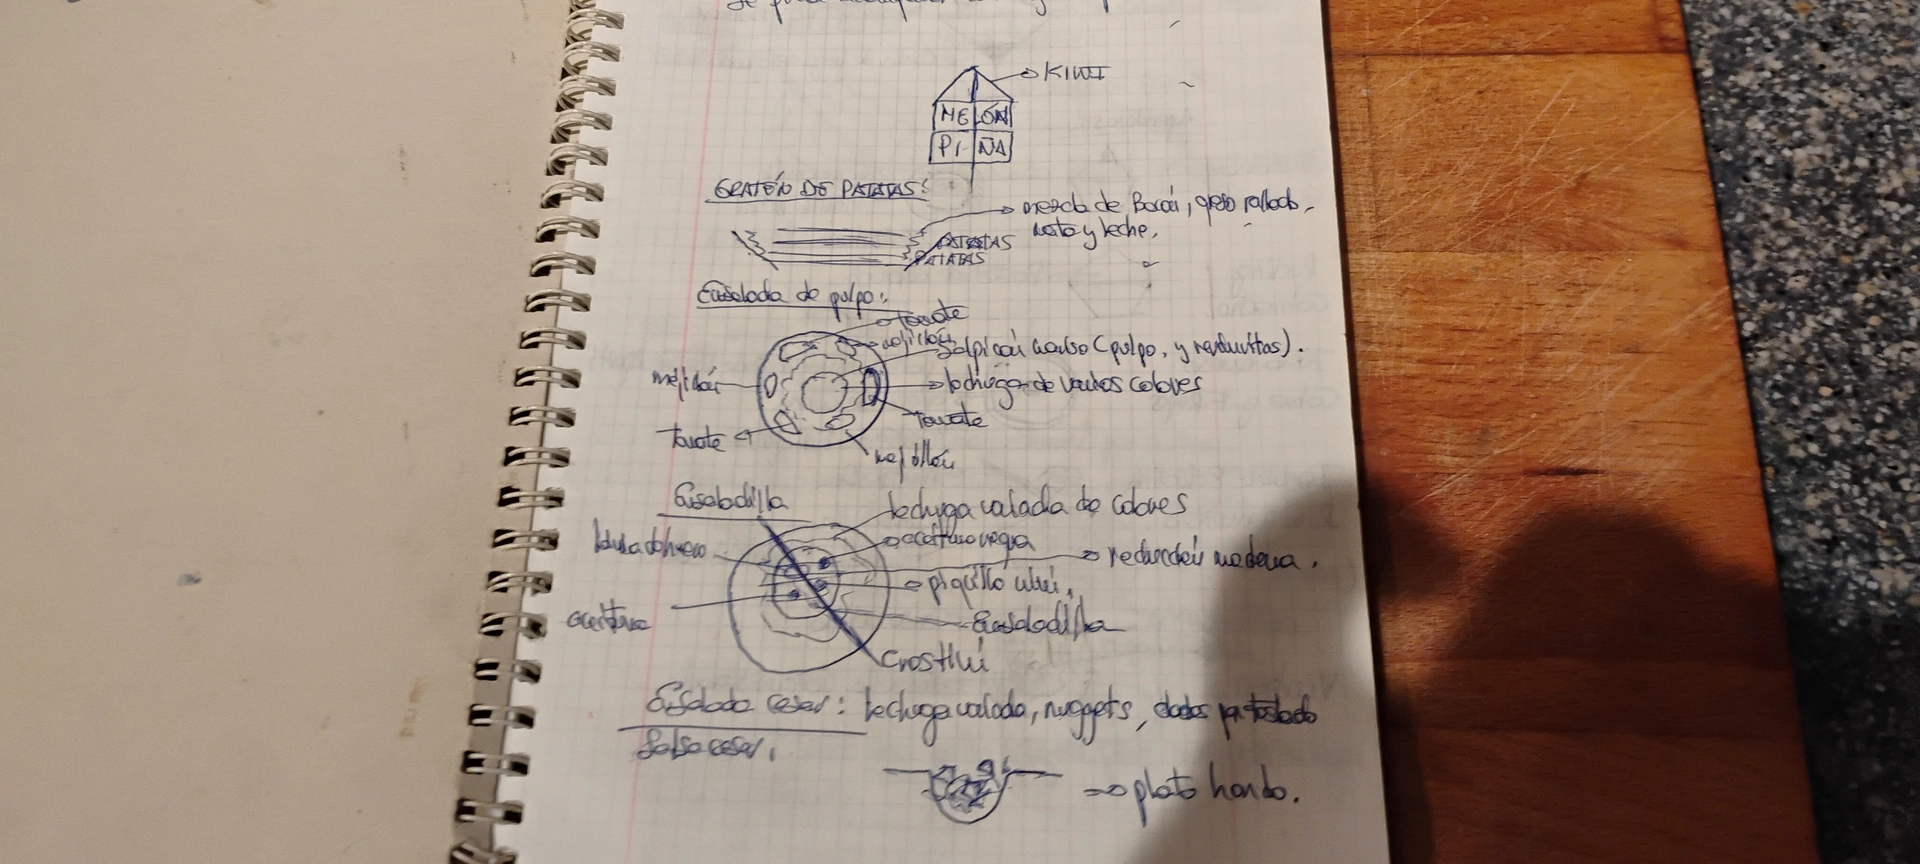 Se puede
KIWI
MELÓN
PIÑA
GRATÉN DE PATATAS:
mezcla de Bacói, queso rallado,
nata y leche.
PATATAS
PATATAS
Ensalada de pulpo:
tomate
mejillón
Salpicón marisco (pulpo, y
mejillón
lechuga de varios colores
tomate
tomate
mejillón
Ensaladilla
lechuga variada de colores
aceituna negra
reducción modena.
piquillo
aceituna
Ensaladilla
Crostini
Ensalada cesar: lechuga variada, nuggets, dados pan tostado
Salsa cesar.
plato hondo.